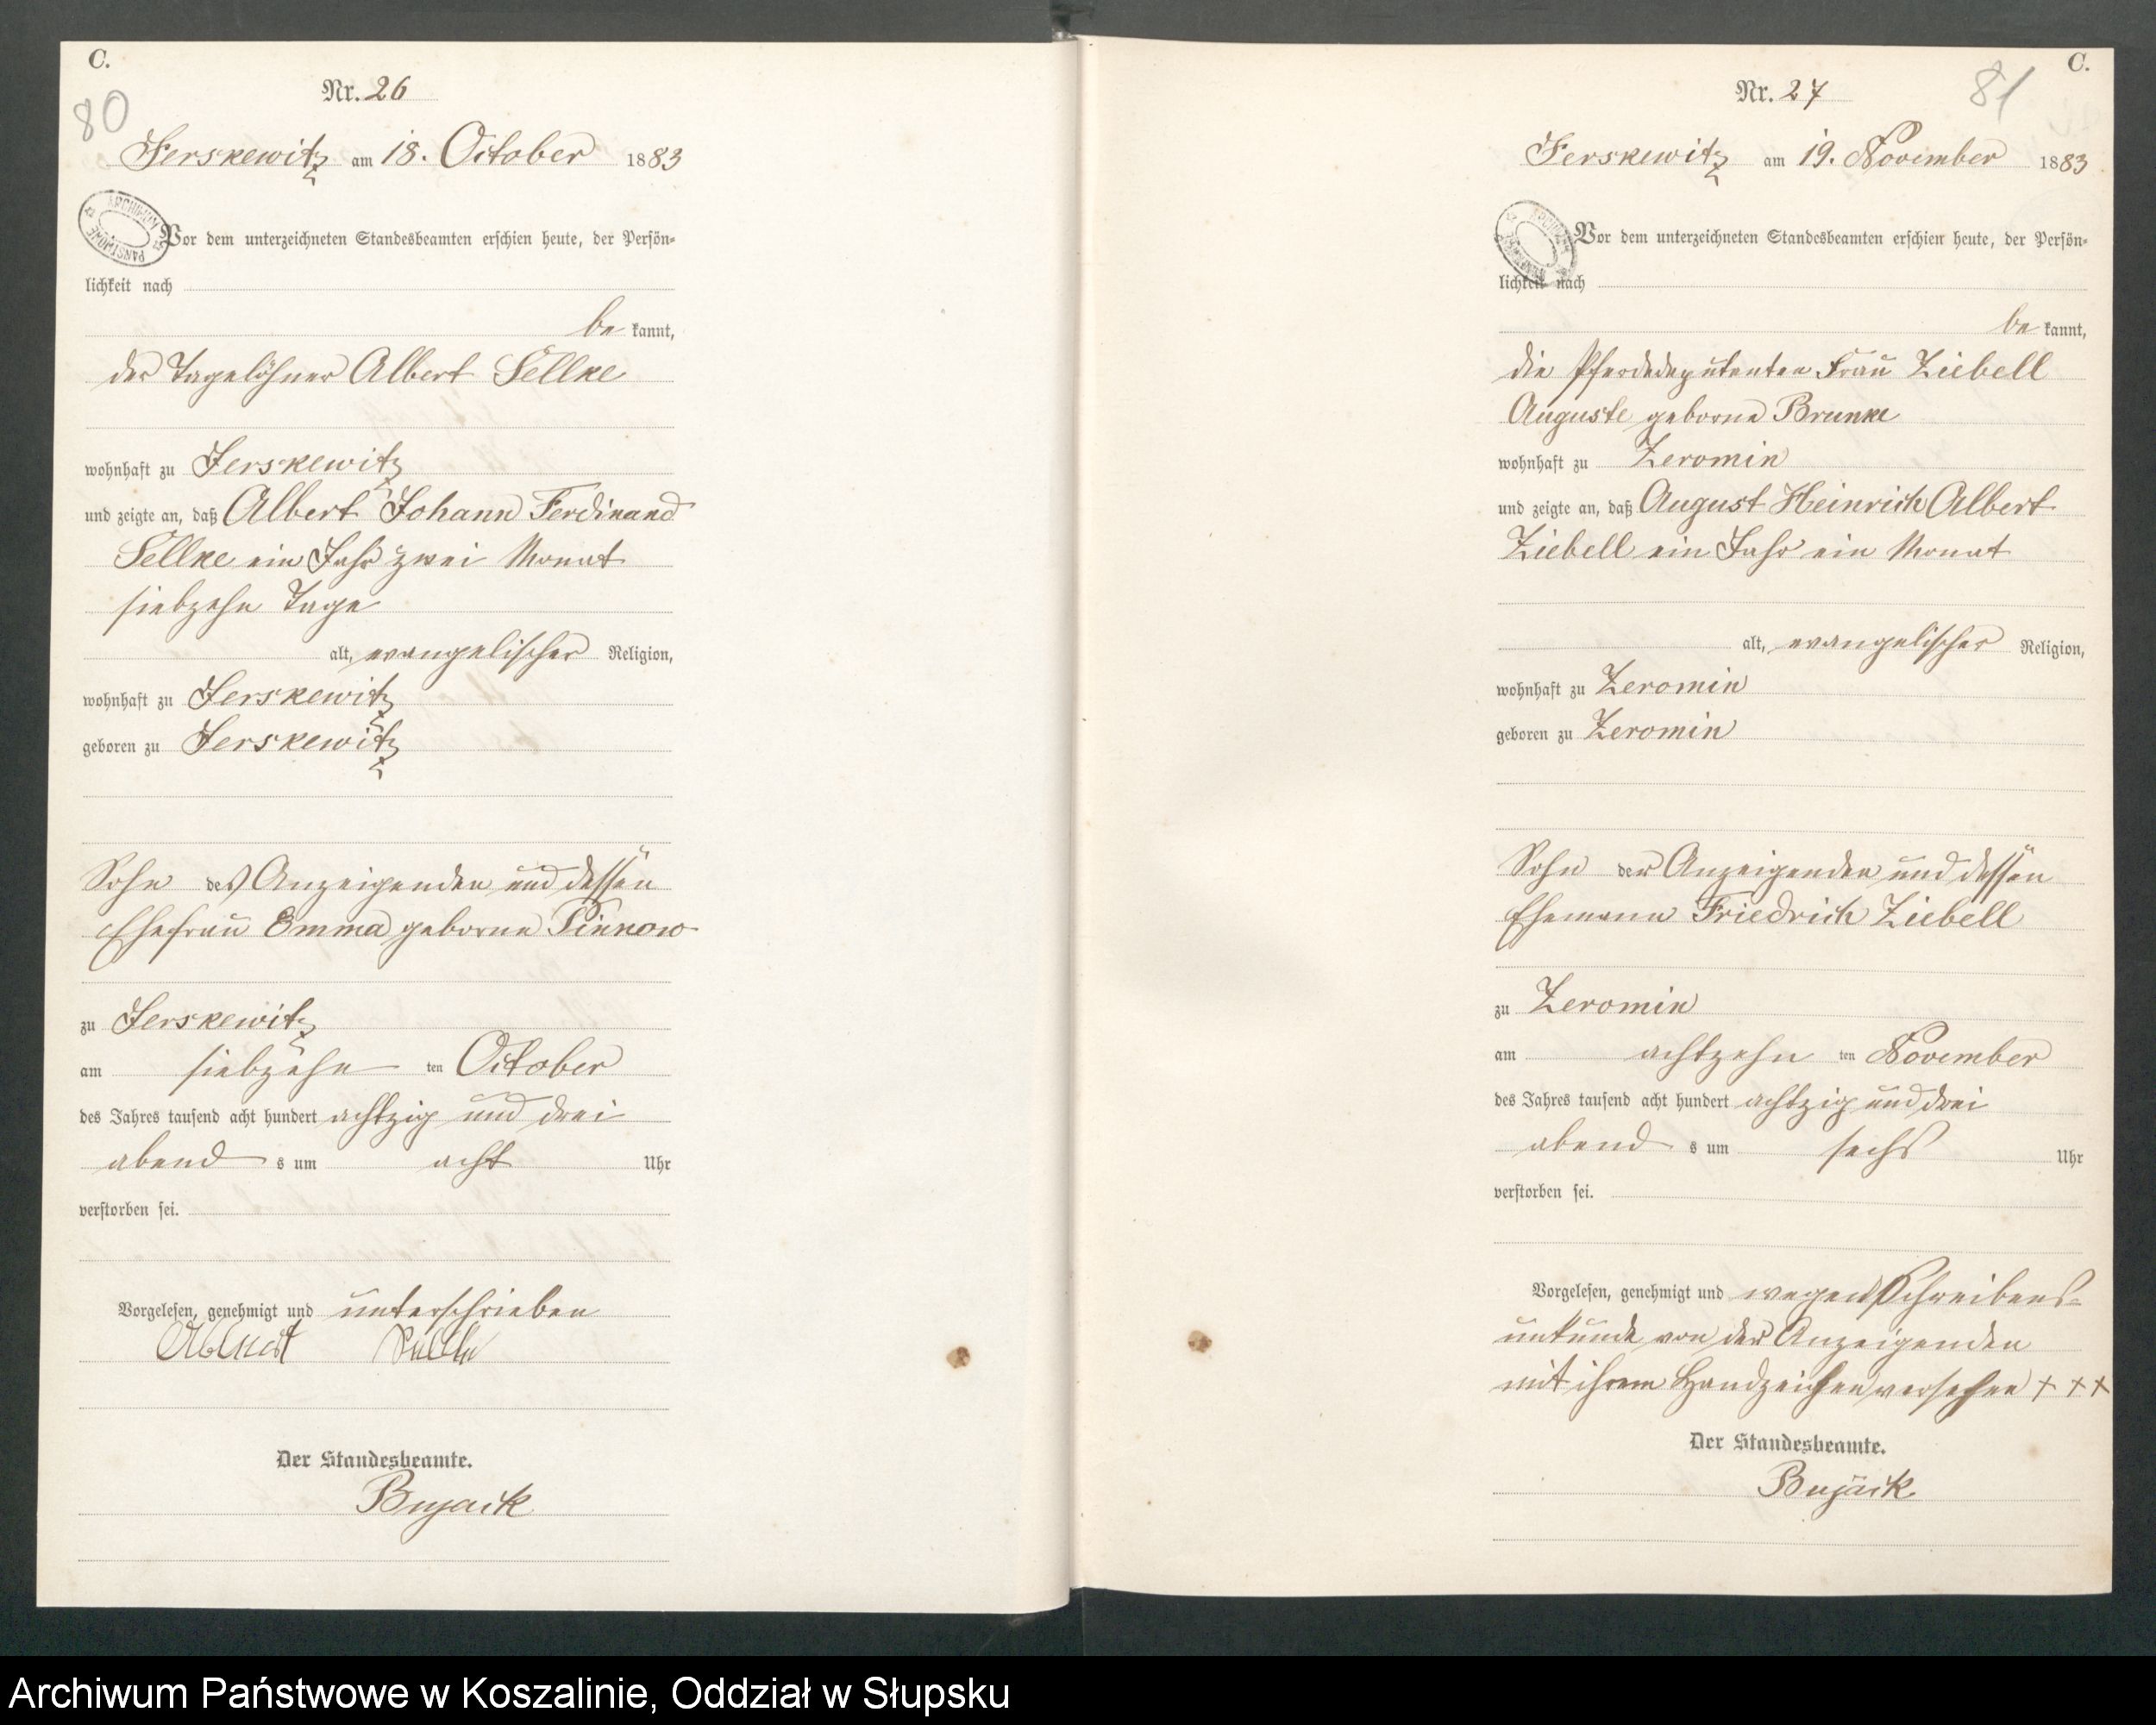 C.
Nr. 26
80
Jerskewitz am 18. October 1883
ARCHIWUM PAŃSTWOWE
Vor dem unterzeichneten Standesbeamten erschien heute, der Persön-
lichkeit nach
be kannt,
der Tagelöhner Albert Sellke
wohnhaft zu Jerskewitz
und zeigte an, daß Albert Johann Ferdinand
Sellke ein Jahr zwei Monat
siebzehn Tage
alt, evangelischer Religion,
wohnhaft zu Jerskewitz
geboren zu Jerskewitz
Sohn des Anzeigenden und dessen
Ehefrau Emma geborne Pinnow
zu Jerskewitz
am siebzehn ten October
des Jahres tausend acht hundert achtzig und drei
abend s um acht Uhr
verstorben sei.
Vorgelesen, genehmigt und unterschrieben
Albert Sellke
Der Standesbeamte.
Bujack
C.
Nr. 27
81
Jerskewitz am 19. November 1883
Vor dem unterzeichneten Standesbeamten erschien heute, der Persön-
lichkeit nach
be kannt,
die Pferdedeputanten Frau Ziebell
Auguste geborne Brunke
wohnhaft zu Zeromin
und zeigte an, daß August Heinrich Albert
Ziebell ein Jahr ein Monat
alt, evangelischer Religion,
wohnhaft zu Zeromin
geboren zu Zeromin
Sohn der Anzeigenden und dessen
Ehemann Friedrich Ziebell
zu Zeromin
am achtzehn ten November
des Jahres tausend acht hundert achtzig und drei
abend s um sechs Uhr
verstorben sei.
Vorgelesen, genehmigt und wegen Schreibens-
unkunde von der Anzeigenden
mit ihrem Handzeichen versehen + + +
Der Standesbeamte.
Bujack
Archiwum Państwowe w Koszalinie, Oddział w Słupsku